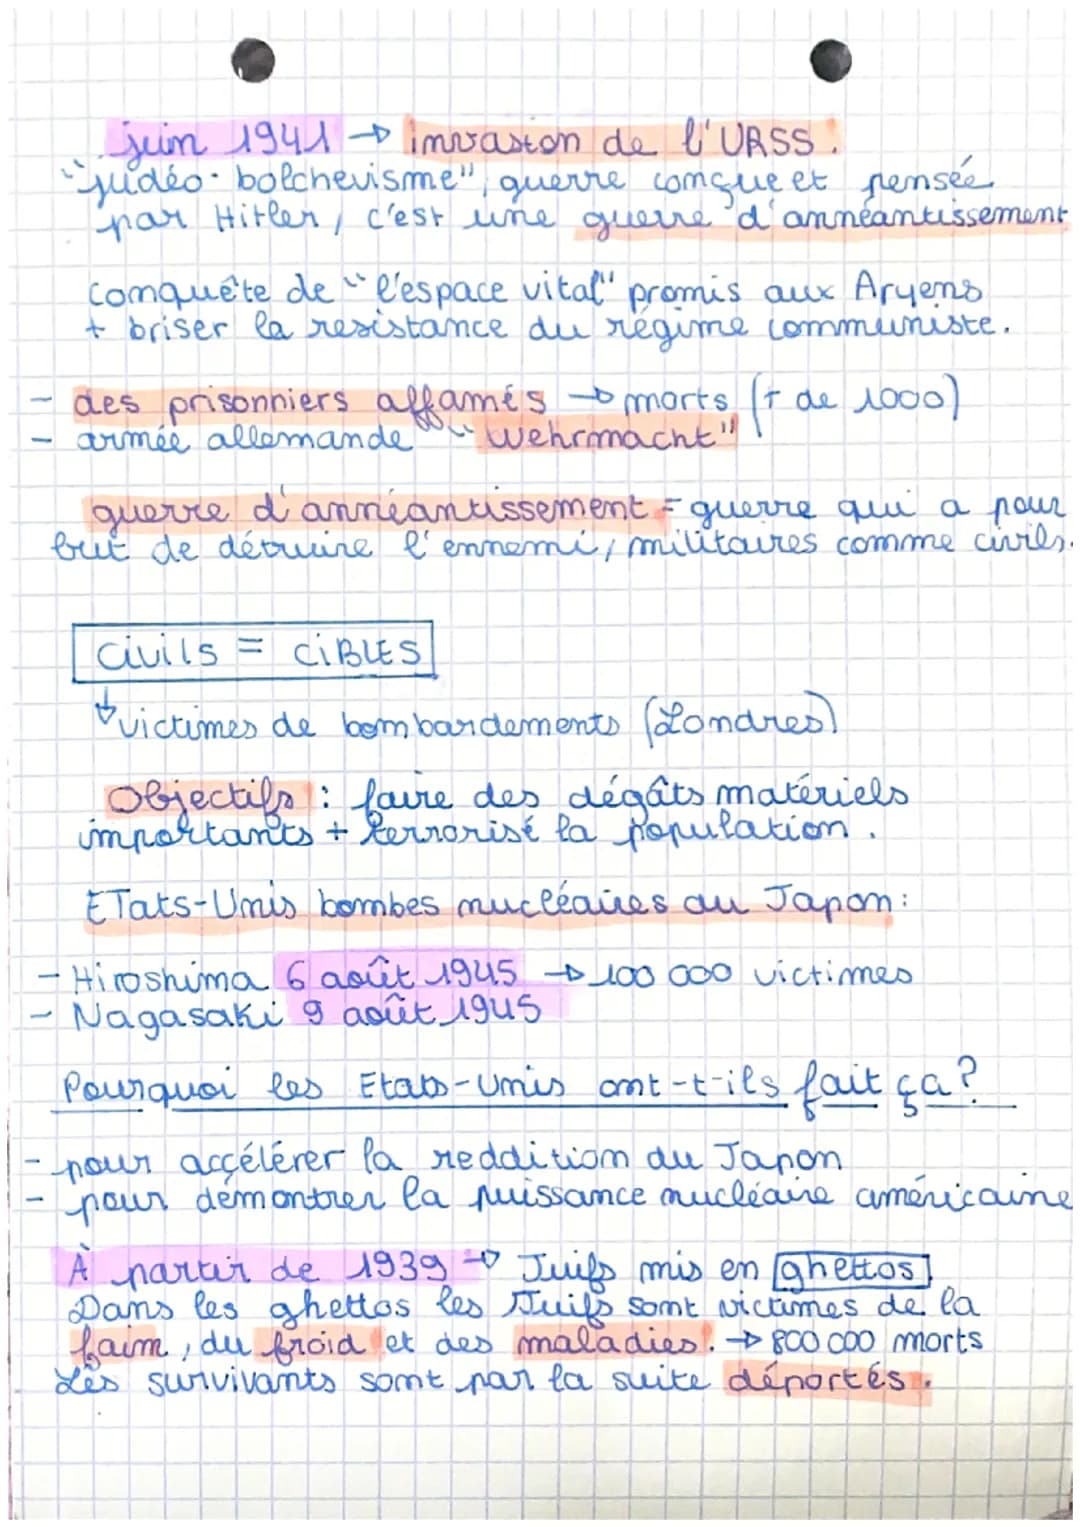 juin 1941 → invasion de l'URSS.
"judéo-bolchevisme", guerre conçue et pensée
par Hitler, c'est une guerre d'annéantissement
conquête de "l'espace vital" promis aux Aryens
+ briser la resistance du régime communiste.
- des prisonniers affamés → morts (+ de 1000)
- armée allemande "Wehrmacht"
guerre d'annéantissement = guerre qui a pour
but de détruire l'ennemi, militaires comme civils.
Civils = CiBLES
↓ victimes de bombardements (Londres)
Objectifs : faire des dégâts matériels
importants + terrorisé la population.
ETats-Unis bombes nucléaires au Japon :
- Hiroshima 6 août 1945 → 100 000 victimes
- Nagasaki 9 août 1945
Pourquoi les Etats-Unis ont-t-ils fait ça ?
- pour accélérer la reddition du Japon
- pour démontrer la puissance nucléaire américaine
À partir de 1939 → Juifs mis en ghettos
Dans les ghettos les Juifs sont victimes de la
faim, du froid et des maladies. → 800 000 morts
Les survivants sont par la suite déportés.